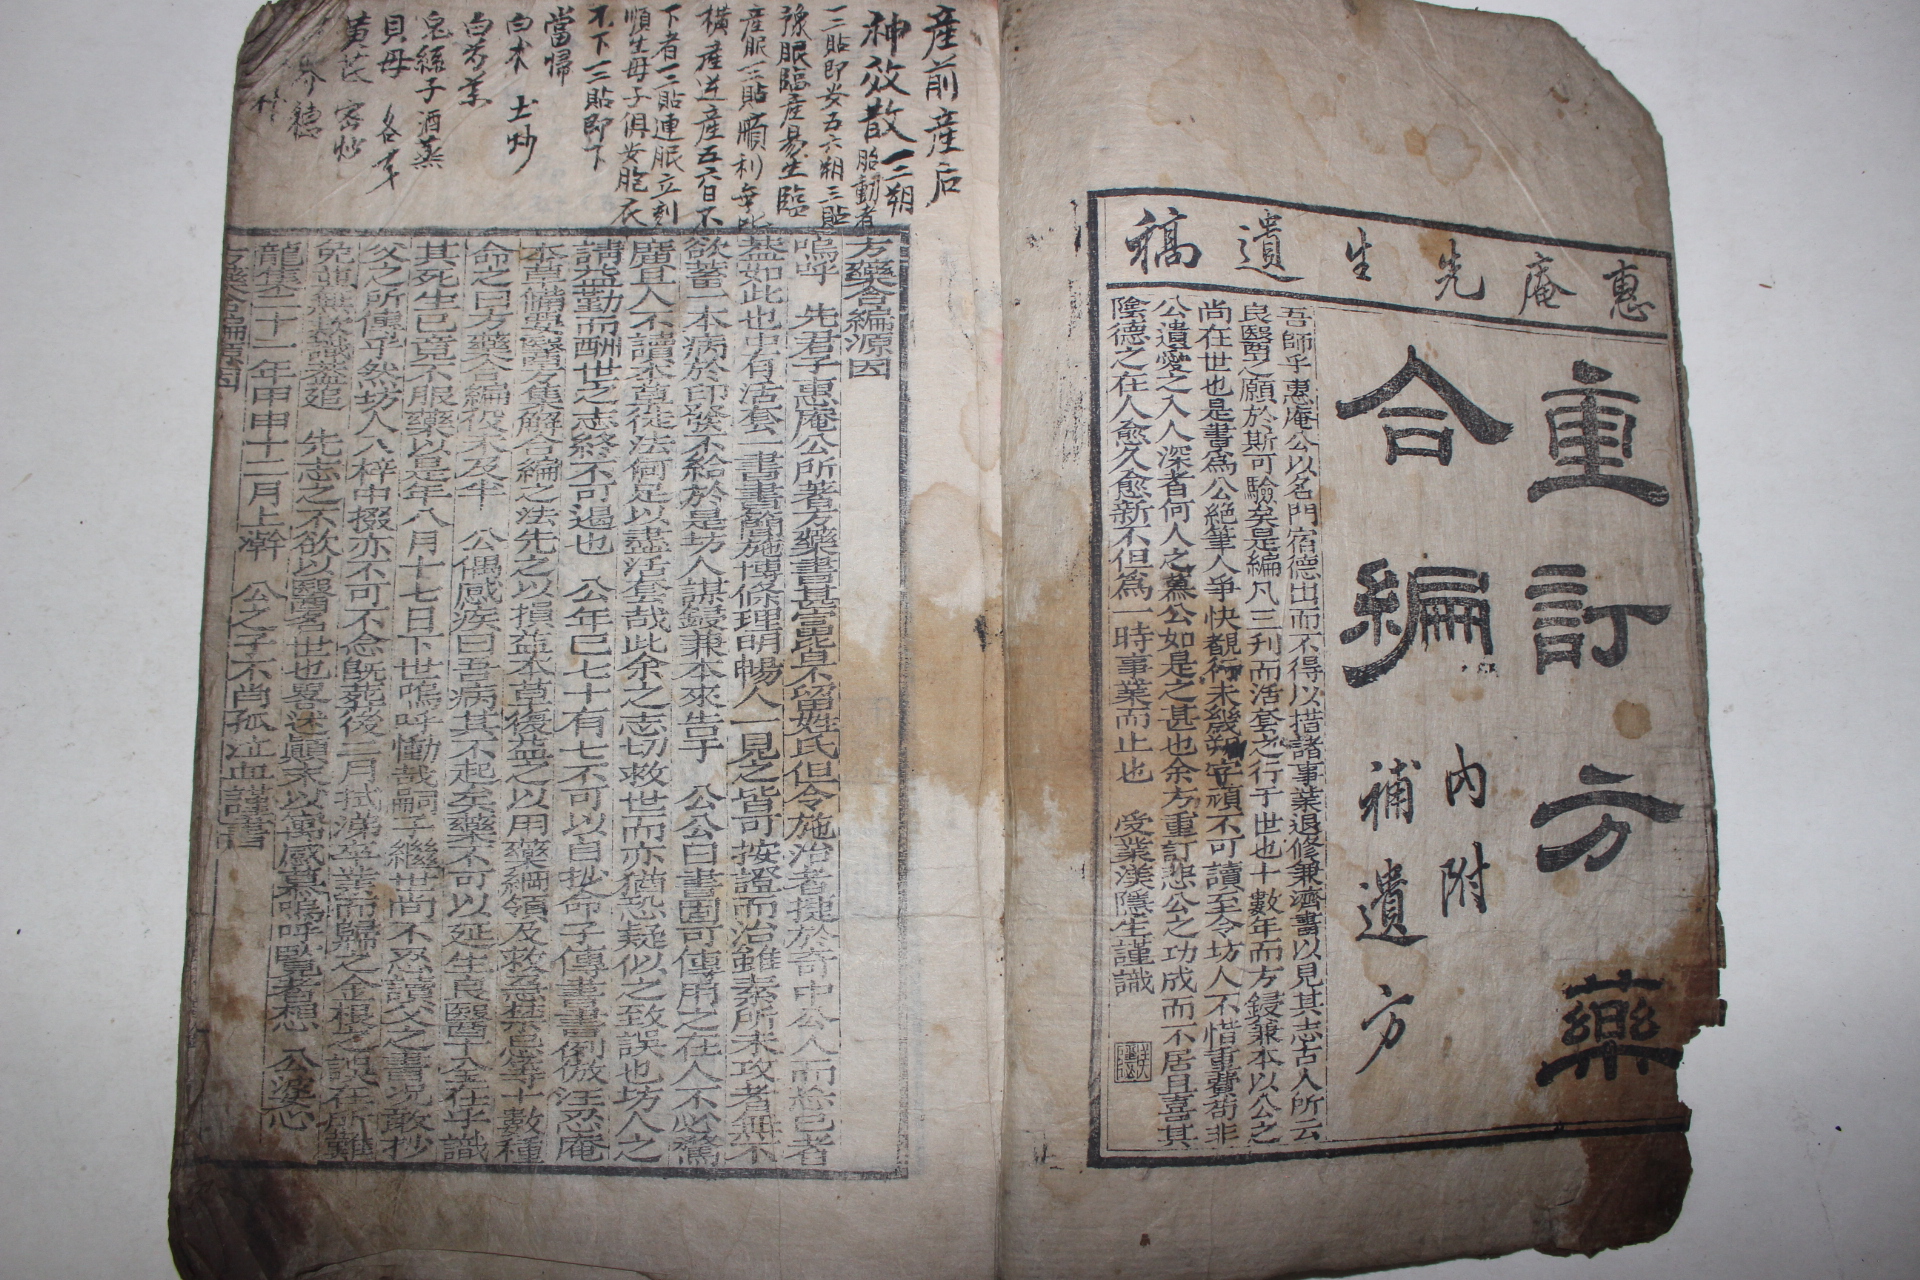 惠庵先生遺稿
重訂方藥
合編
內附
補遺方
吾師乎惠庵公以名門宿德出而不得以措諸事業退修兼濟書以見其志古人所云
良醫之願於斯可驗矣是編凡三刊而活套之行于世也十數年而方鋟兼本以公之
尚在世也是書爲公絶筆人爭快覩行未幾字頑不可讀至今坊人不惜重費苟非
公遺愛之入人深者何人之慕公如是之甚也余方重訂悲公之功成而不居且喜其
陰德之在人愈久愈新不但爲一時事業而止也 受業渼隱生謹識
産前産后
神效散 一二朔
胎動者
一二貼即安五六朔三貼
豫服臨産易生臨
産服一二貼順利
橫産逆産五六日不
下者一二貼連服立刻
順生母子俱安胞衣
不下一二貼即下
當歸
白朮 土炒
白芍藥
兎絲子 酒蒸
貝母 各一戔
黃芪 密炒
方藥合編源因
嗚呼 先君子惠庵公所著方藥書甚富毘皐不留姓氏但令施治者捷於奇中公人而忘己者
盖如此也中有活套一書書簡施博條理明暢人一見之皆可按證而治雖素所未攻者無不
欲蓄一本病於印發不給於是坊人謀鋟兼本來告于 公公曰書固可傳用之在人不必驚
廣且人不讀本草徒法何足以盡活套哉此余之志切救世而亦猶恐疑似之致誤也坊人之
請益勤而酬世之志終不可遏也 公年已七十有七不可以自抄命子傳書書例倣汪忍庵
本草備要醫方集解合編之法先之以損益本草後益之以用藥綱領及救急禁忌等十數種
命之曰方藥合編役未及半 公偶感疾曰吾病其不起矣藥不可以延生良醫十全在乎識
其死生已竟不服藥以是年八月十七日下世嗚呼慟哉嗣子繼世尚不忍讀父之書况敢抄
父之所傳乎然坊人入梓中掇亦不可不念旣葬後二月拭淚卒業而歸之金根之誤在所難
免蕪無敢識盖追 先志之不欲以醫名世也畧述顚末以寓感慕嗚呼覽者想 公婆心
龍集二十一年甲申十二月上澣 公之子不肖孤泣血謹書
方藥合編源因